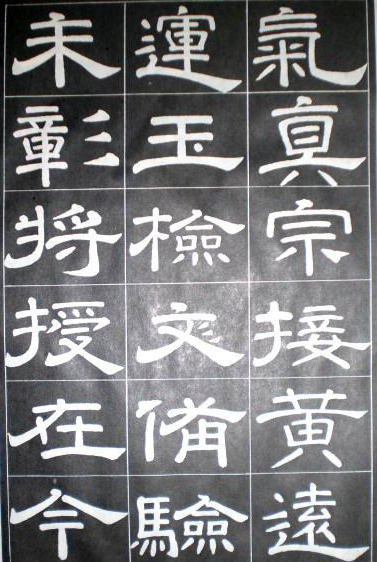 氣真宗接黄遠
運玉檢文俻驗
未彰將授在今